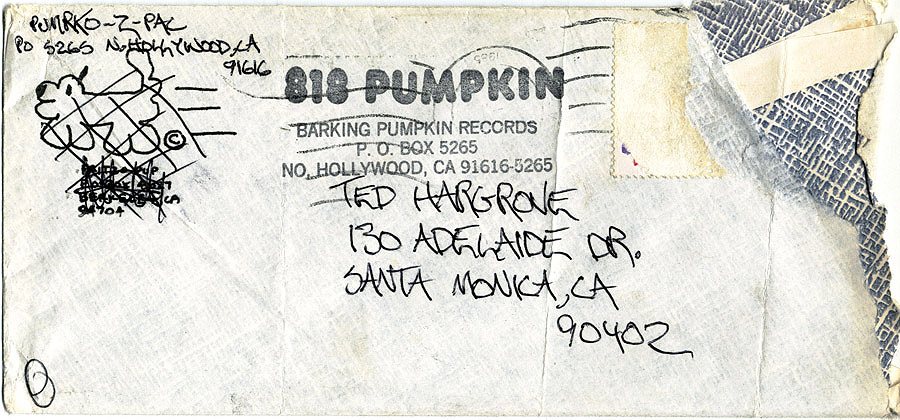 PUMRKO-Z-PAC
PO 5265 No. HOLLYWOOD, CA
91616
©
818 PUMPKIN
BARKING PUMPKIN RECORDS
P. O. BOX 5265
NO. HOLLYWOOD, CA 91616-5265
TED HARGROVE
130 ADELAIDE DR.
SANTA MONICA, CA
90402